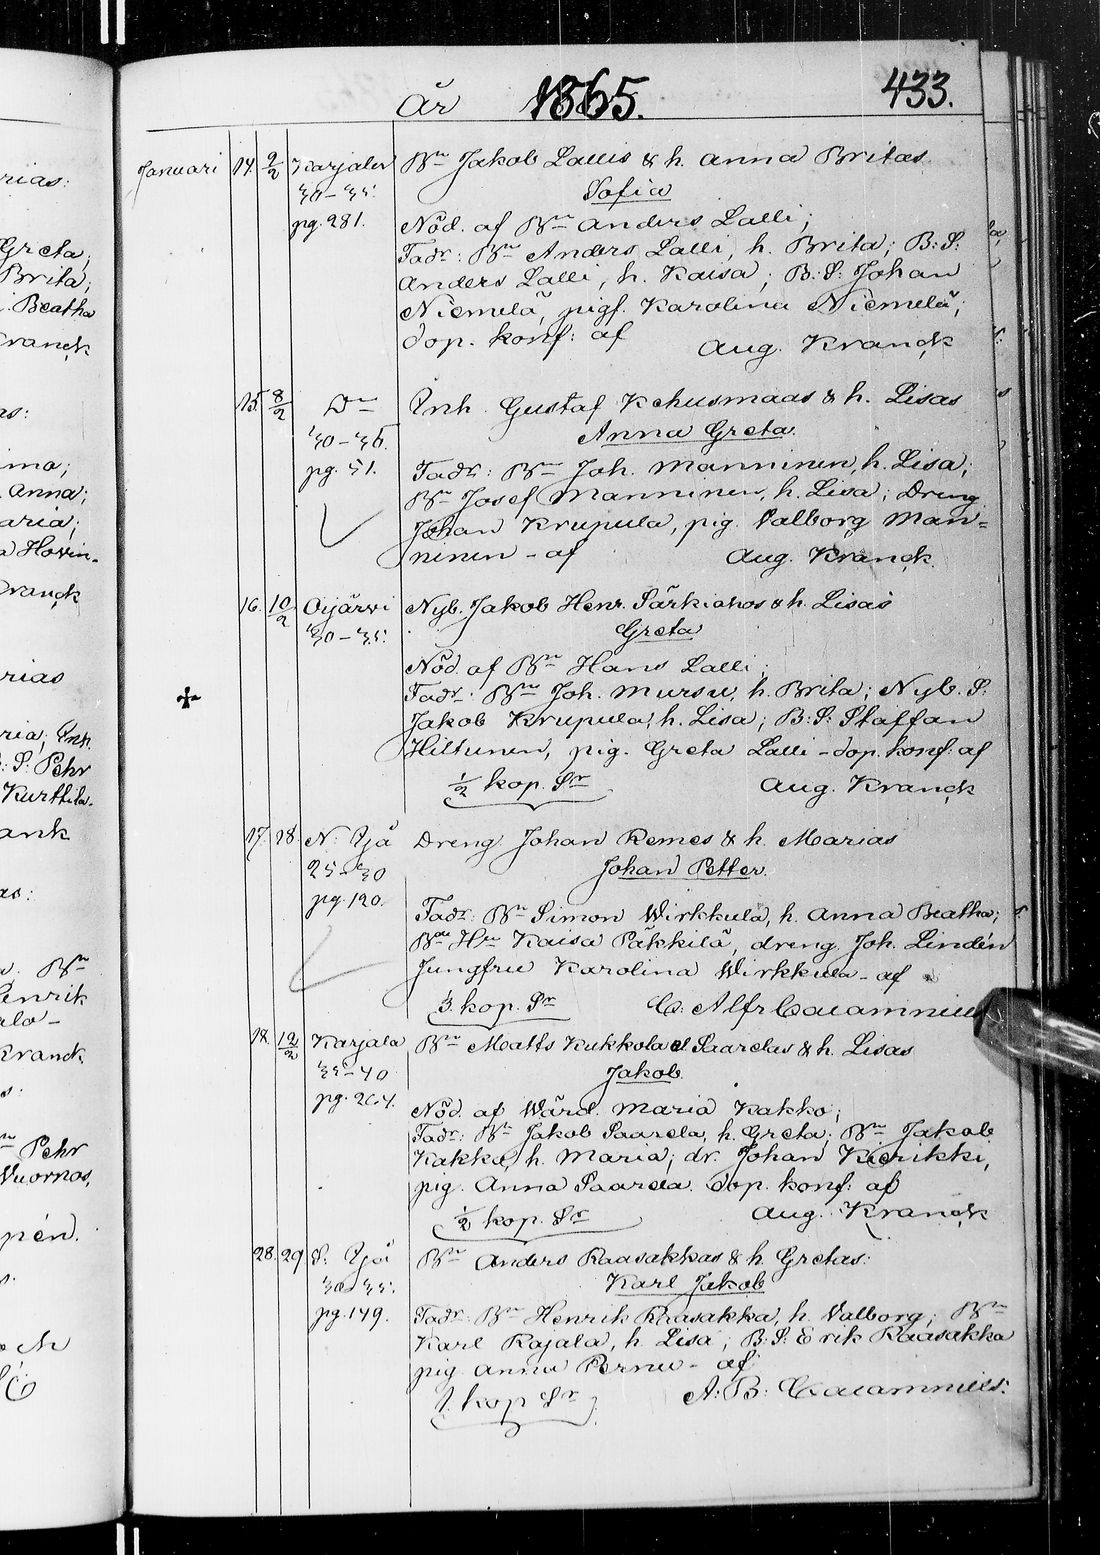 År 1865. 433.
Januari 14. 9/2 Karjalan Bn Jakob Lallis & h. Anna Britas
30-35. Sofia
pg. 281. Nöd. af Bn Anders Lalli;
Fadr: Bn Anders Lalli, h. Brita; B:S:
Anders Lalli, h. Kaisa; B:S: Johan
Niemelä, pigf. Karolina Niemelä;
dop. konf: af Aug. Kranck
15. 8/2 Dn Inh. Gustaf Kehusmaas & h. Lisas
30-36. Anna Greta.
pg. 51. Fadr: Bn Joh. Manninen, h. Lisa;
Bn Josef Manninen, h. Lisa; Dreng
Johan Krupula, pig. Valborg Man=
ninen - af Aug. Kranck.
16. 10/2 Oijärvi Nyb. Jakob Henr. Särkiahos & h. Lisas
30-35. Greta
Nöd. af Bn Hans Lalli.
Fadr: Bn Joh. Mursu, h. Brita; Nyb. S:
Jakob Krupula, h. Lisa; B:S: Staffan
Hiltunen, pig. Greta Lalli - dop. konf: af
1/2 kop. Sr Aug. Kranck
17. 18 N. Ijå Dreng Johan Remes & h. Marias
25-30 Johan Petter.
pg. 120. Fadr: Bn Simon Wirkkula, h. Anna Beatha;
Kaisa Päkkilä, dreng Joh. Lindén
Jungfru Karolina Wirkkula - af
3. kop. Sr C. Alfr Calamnius
18. 12/2 Karjala Bn Matts Kukkola el Saarelas & h. Lisas
35-40 Jakob.
pg. 264. Nöd. af Wärd. Maria Kakko;
Fadr: Bn Jakob Saarela, h. Greta; Bn Jakob
Kakko, h. Maria; dr. Johan Kierikki,
pig. Anna Saarela. dop. konf: af
1/2 kop. Sr Aug. Kranck
28. 29 S. Ijå Bn Anders Raasakkas & h. Gretas:
30-35. Karl Jakob
pg. 149. Fadr: Bn Henrik Raasakka, h. Valborg; Bn
Karl Rajala, h. Lisa; B.S. Erik Raasakka
pig. Anna Pernu - af
1. kop Sr A: B: Calamnius.